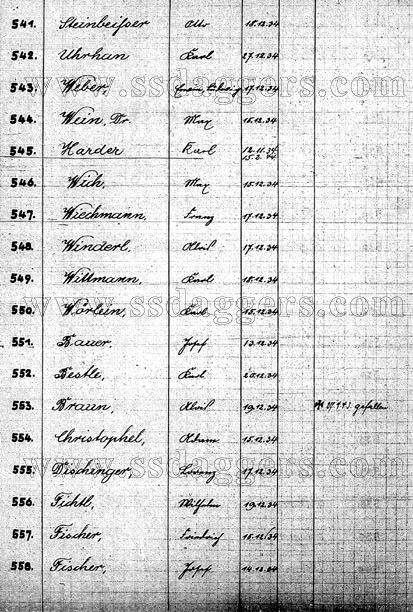 541. Steinbeißer Otto 18.12.34
542. Uhrhan Karl 27.12.34
www.ssdaggers.com
543. Weber, Ludwig 17.12.34
544. Wein, Dr. Max 15.12.34
545. Harder Karl 12.11.34
546. Wich, Max 15.12.34
547. Wiechmann, Franz 17.12.34
548. Winderl, Alois 17.12.34
549. Wittmann, Karl 18.12.34
www.ssdaggers.com
550. Wörlein, Karl 15.12.34
551. Bauer, Josef 13.12.34
552. Bestle, Karl 20.12.34
553. Braun, Alois 19.12.34 gefallen
554. Christophel, Adam 15.12.34
555. Dischinger, Lorenz 17.12.34
www.ssdaggers.com
556. Fichtl, Wilhelm 19.12.34
557. Fischer, Friedrich 18.12.34
558. Fischer, Josef 14.12.34